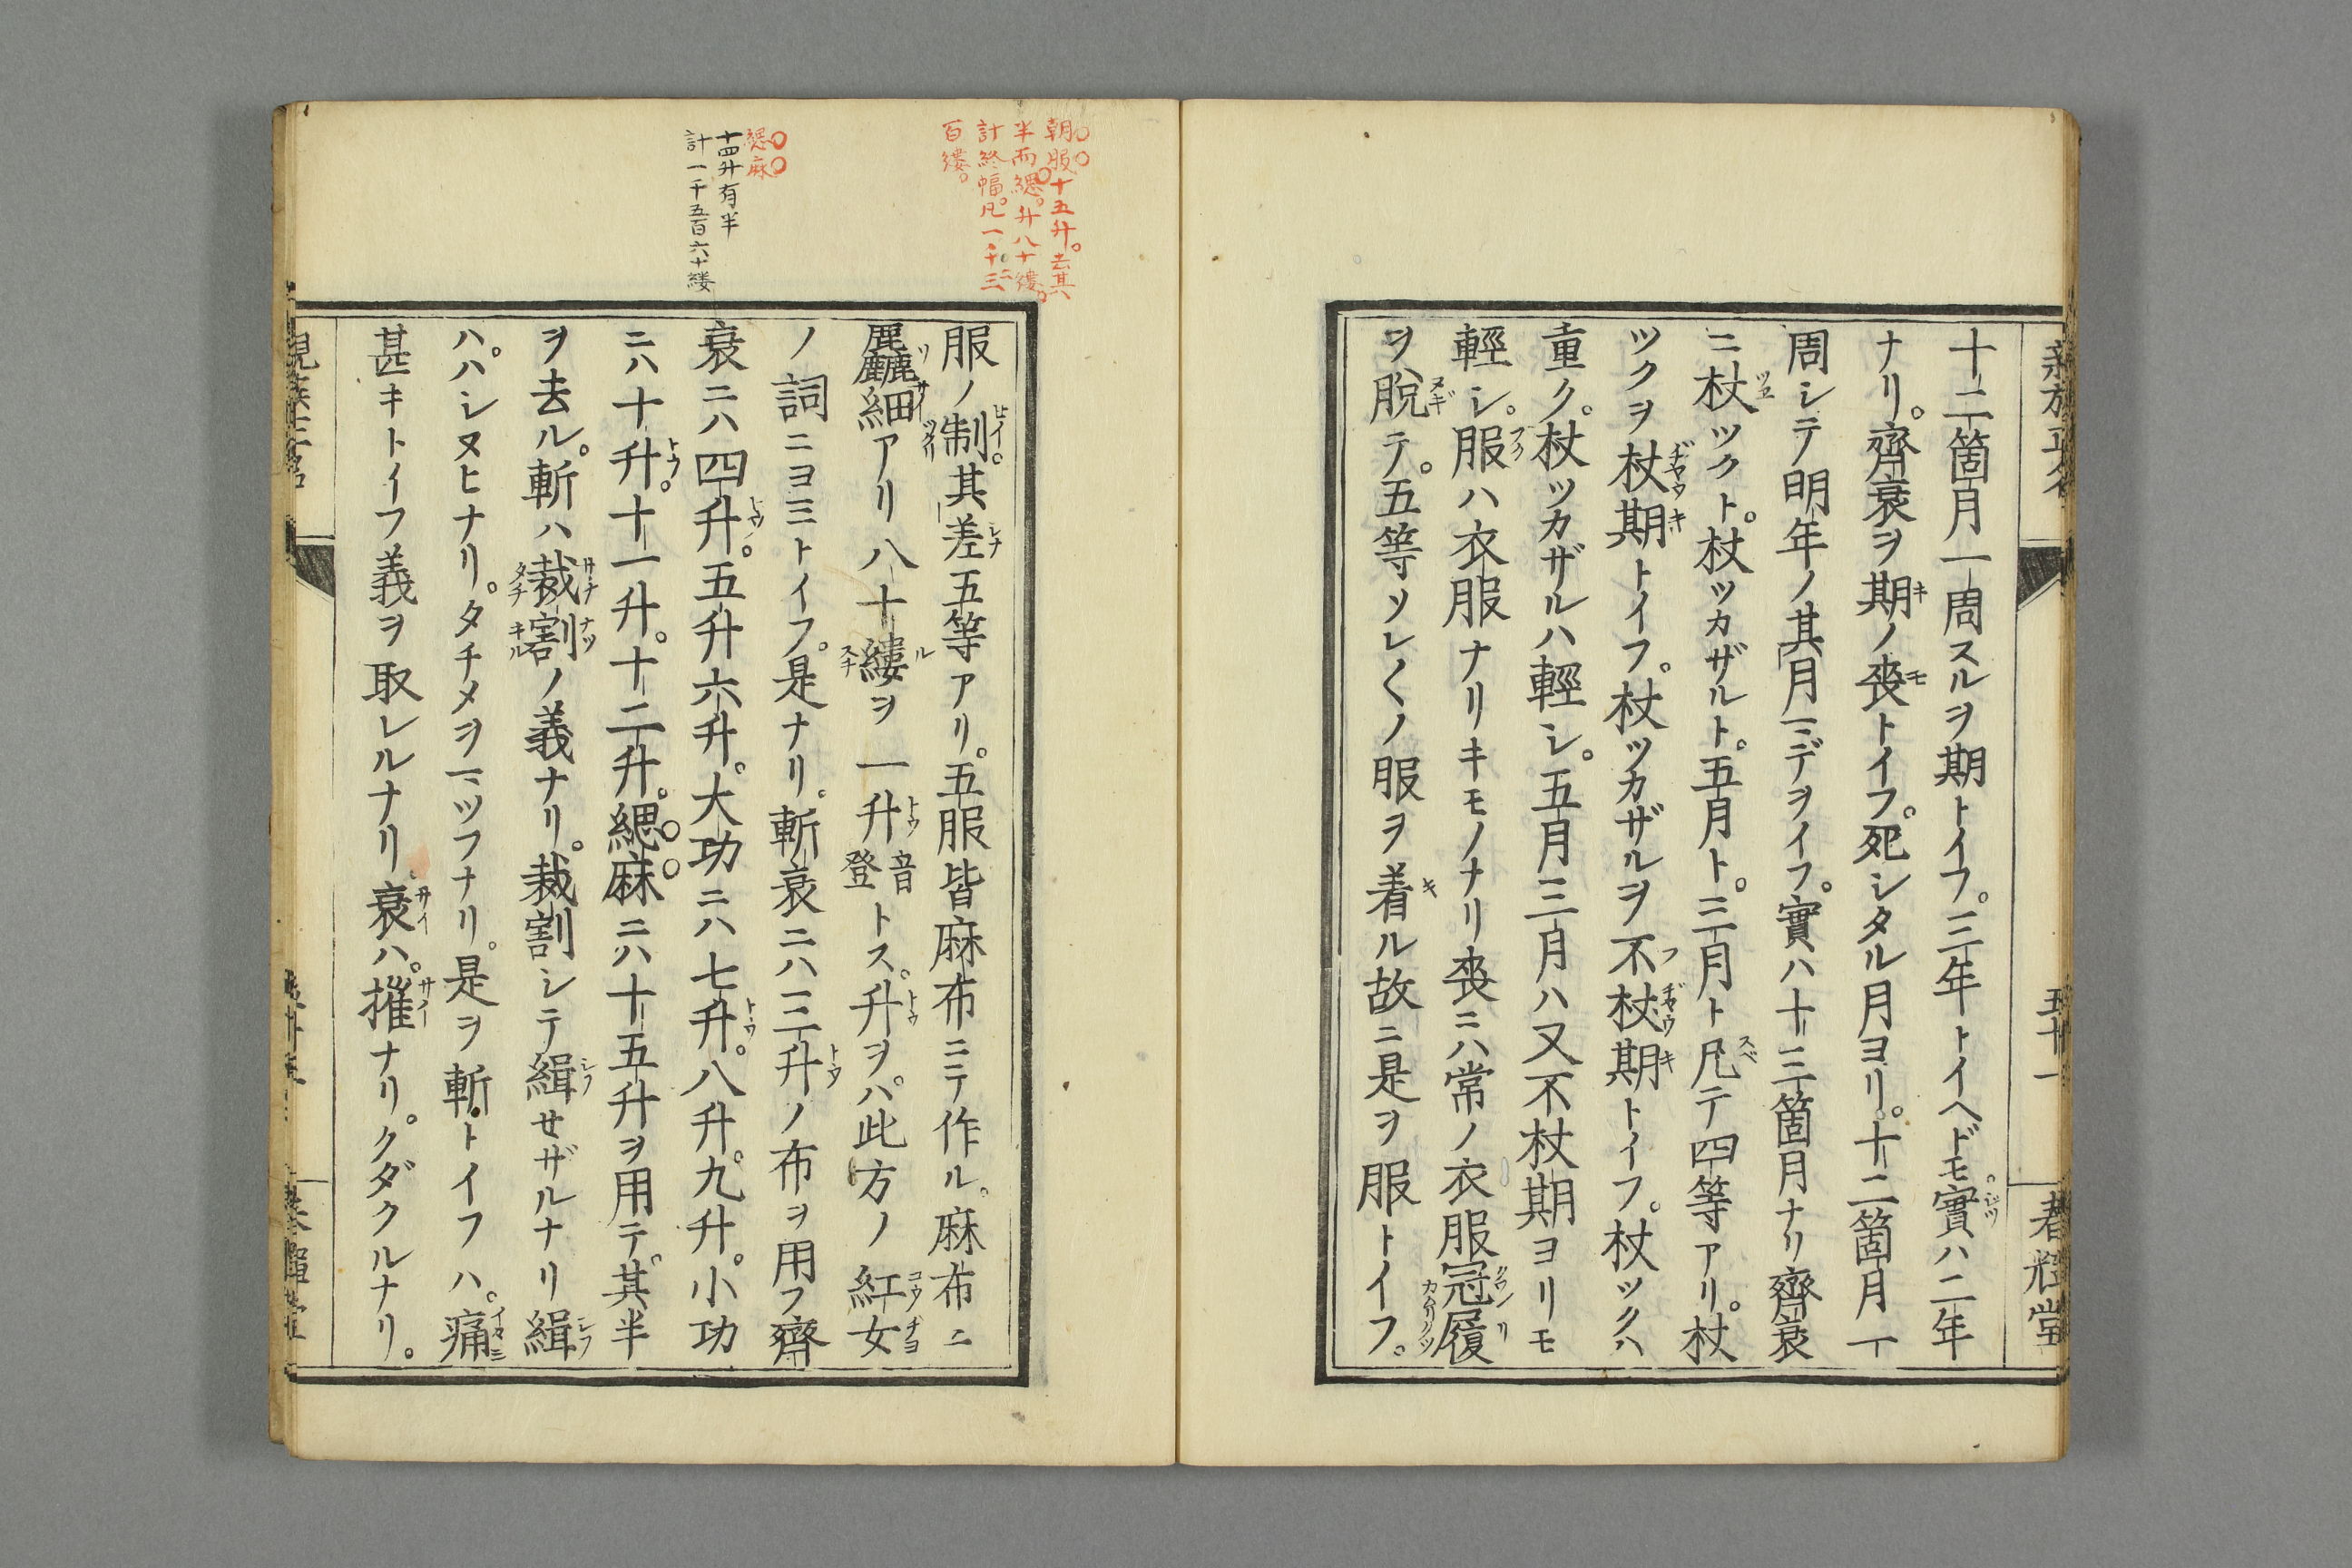 五十一
十二箇月一周スルヲ期トイフ。三年トイヘドモ。實ハ二年
ナリ。齊衰ヲ期ノ喪トイフ。死シタル月ヨリ。十二箇月一
周シテ明年ノ其月マデヲイフ。實ハ十三箇月ナリ齊衰
ニ杖ツクト。杖ツカザルト。五月ト。三月ト凡テ四等アリ。杖
ツクヲ杖期トイフ。杖ツカザルヲ不杖期トイフ。杖ツクハ
重ク。杖ツカザルハ輕シ。五月三月ハ又不杖期ヨリモ
輕シ。服ハ衣服ナリキモノナリ喪ニハ常ノ衣服冠履
ヲ脱テ。五等ソレ〱ノ服ヲ着ル故ニ是ヲ服トイフ。
朝服十五升。去其
半而緦。升八十縷。
計終幅。凡一千二
百縷。
緦麻
十四升有半
計一千五百六十縷
服ノ制。其差五等アリ。五服皆麻布ニテ作ル。麻布ニ
麤細アリ八十縷ヲ一升音登トス。升ヲバ此方ノ紅女
ノ詞ニヨミトイフ。是ナリ。斬衰ニハ三升ノ布ヲ用フ齊
衰ニハ四升。五升六升。大功ニハ七升。八升。九升。小功
ニハ十升。十一升。十二升。緦麻ニハ十五升ヲ用テ其半
ヲ去ル。斬ハ裁割ノ義ナリ。裁割シテ緝セザルナリ緝
ハ。ハシヌヒナリ。タチメヲマツフナリ。是ヲ斬トイフハ。痛
甚キトイフ義ヲ取レルナリ。衰ハ。摧ナリ。クダクルナリ。